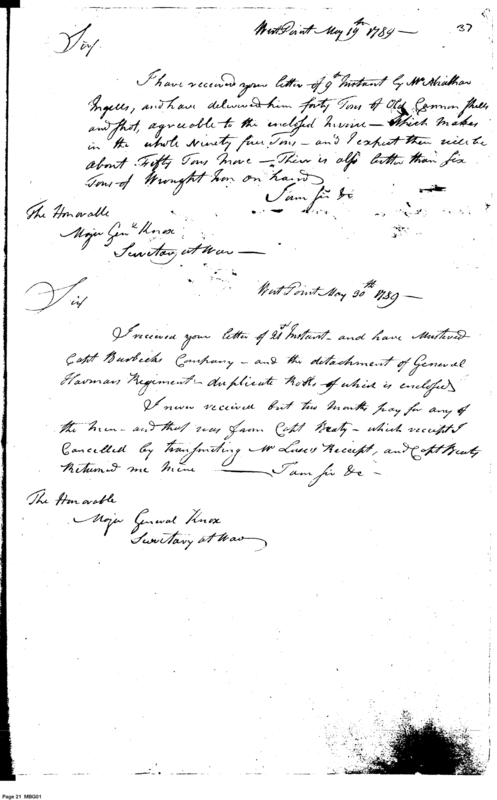 West Point May 19th 1789 — 37
Sir
I have received your letter of 9th Instant by Mr
Ingells, and have delivered him forty Tons of Old Cannon Shells
and shot, agreeable to the enclosed Invoice — Which makes
in the whole Ninety five Tons — and I expect there will be
about Fifty Tons more — There is also better than six
Tons of Wrought Iron on hand
I am Sir &c
The Honorable
Major Genl Knox
Secretary at War —
West Point May 30th 1789 —
Sir
I received your letter of 28th Instant — and have Mustered
Capt Burbecks Company — and the detachment of General
Harmars Regiment — duplicate Rolls of which is enclosed
I never received but two Months pay for any of
the Men — and that was from Capt Beaty — which receipt I
Cancelled by transmiting Mr Luse's Receipt, and Capt Beaty
Returned me Mine — I am Sir &c —
The Honorable
Major General Knox
Secretary at War
Page 21 MBG01